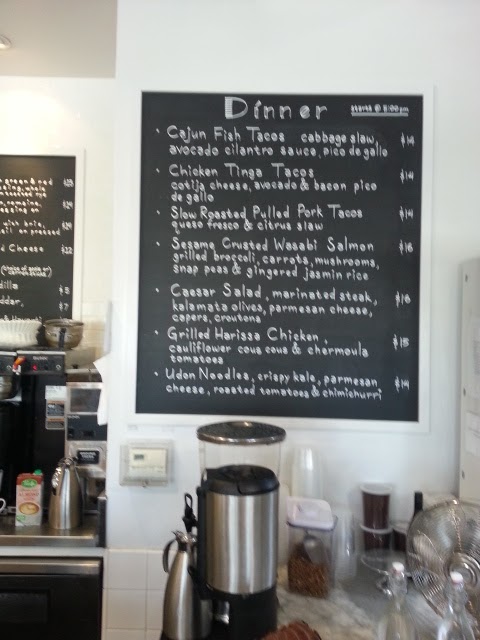 Dinner starts @ 5:00pm
• Cajun Fish Tacos cabbage slaw, $14
avocado cilantro sauce, pico de gallo
• Chicken Tinga Tacos $14
cotija cheese, avocado & bacon pico
de gallo
• Slow Roasted Pulled Pork Tacos $14
queso fresco & citrus slaw
• Sesame Crusted Wasabi Salmon $16
grilled broccoli, carrots, mushrooms,
snap peas & gingered jasmin rice
• Caesar Salad, marinated steak, $16
kalamata olives, parmesan cheese,
capers, croutons
• Grilled Harissa Chicken, $15
cauliflower cous cous & chermoula
tomatoes
• Udon Noodles, crispy kale, parmesan $14
cheese, roasted tomatoes & chimichurri
green & red
Cheese